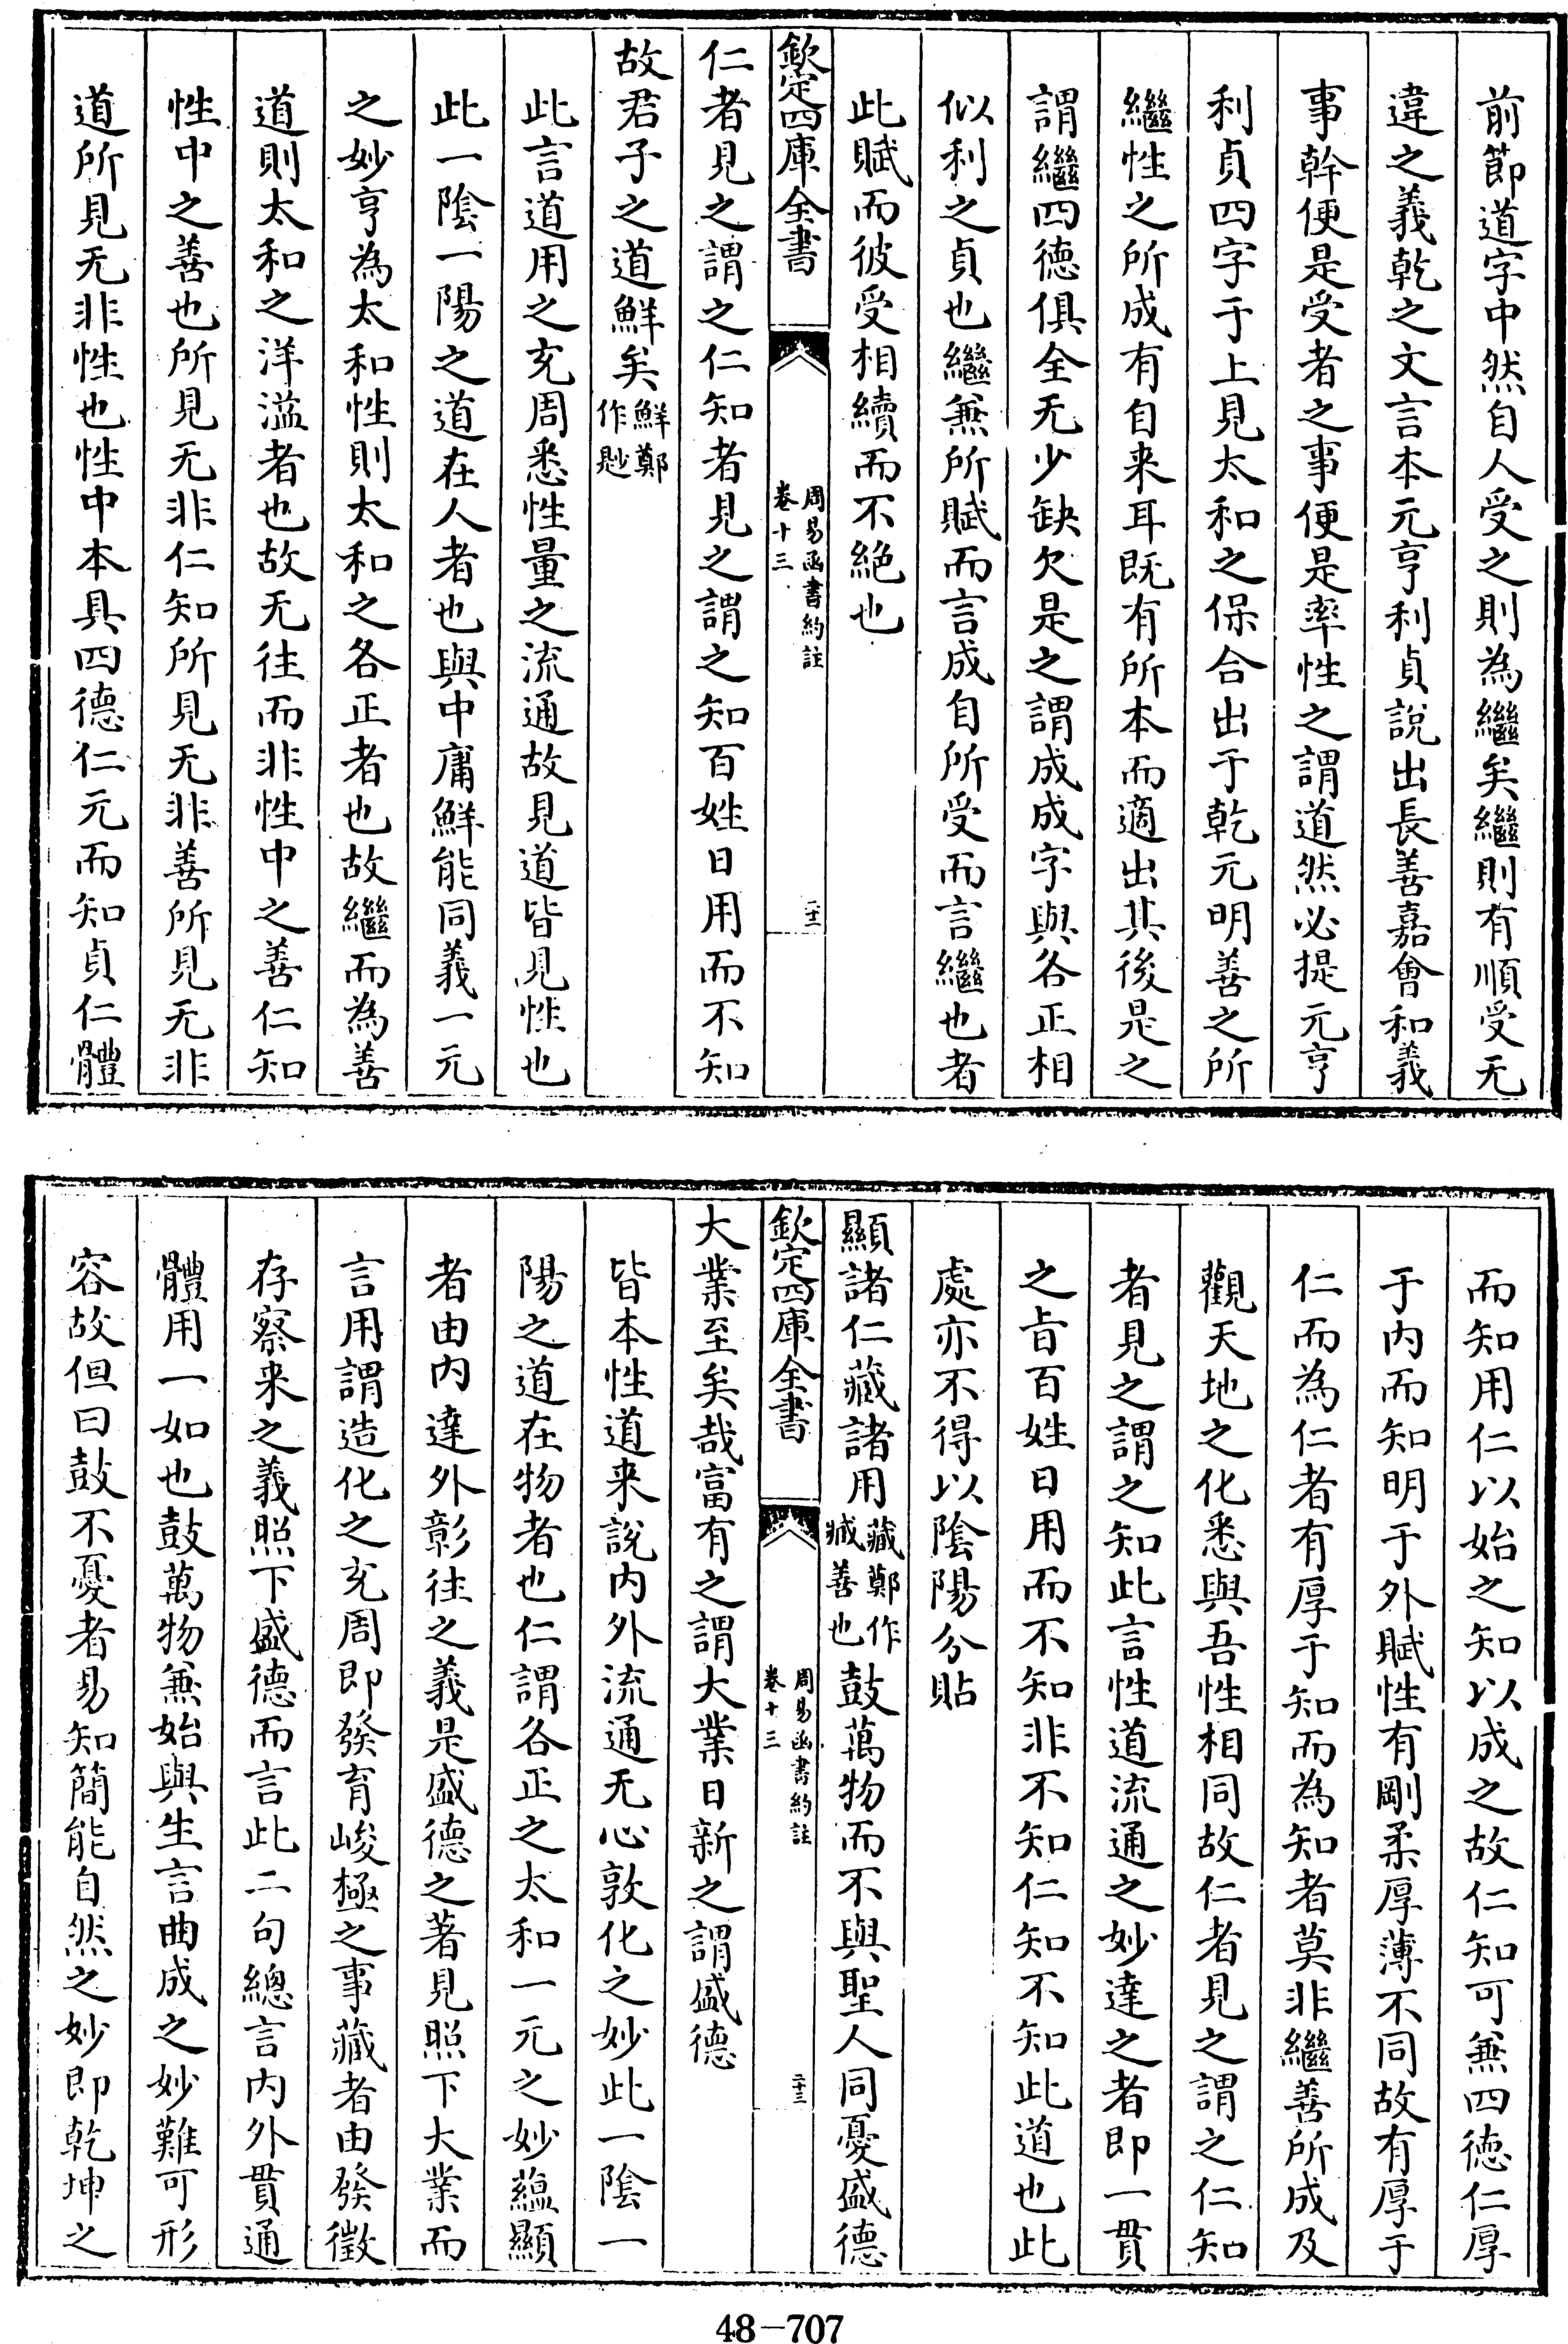 前節道字中然自人受之則為繼矣繼則有順受无
違之義乾之文言本元亨利貞說出長善嘉會和義
事幹便是受者之事便是率性之謂道然必提元亨
利貞四字于上見太和之保合出于乾元明善之所
繼性之所成有自来耳既有所本而適出其後是之
謂繼四徳俱全无少缺欠是之謂成成字與各正相
似利之貞也繼兼所賦而言成自所受而言繼也者
此賦而彼受相續而不絶也
欽定四庫全書
周易函書約註
卷十三
二十二
仁者見之謂之仁知者見之謂之知百姓日用而不知
故君子之道鮮矣鮮鄭作尟
此言道用之充周悉性量之流通故見道皆見性也
此一陰一陽之道在人者也與中庸鮮能同義一元
之妙亨為太和性則太和之各正者也故繼而為善
道則太和之洋溢者也故无往而非性中之善仁知
性中之善也所見无非仁知所見无非善所見无非
道所見无非性也性中本具四德仁元而知貞仁體
而知用仁以始之知以成之故仁知可兼四徳仁厚
于内而知明于外賦性有剛柔厚薄不同故有厚于
仁而為仁者有厚于知而為知者莫非繼善所成及
觀天地之化悉與吾性相同故仁者見之謂之仁知
者見之謂之知此言性道流通之妙達之者即一貫
之旨百姓日用而不知非不知仁知不知此道也此
處亦不得以陰陽分貼
顯諸仁藏諸用藏鄭作臧善也鼓萬物而不與聖人同憂盛德
欽定四庫全書
周易函書約註
卷十三
二十三
大業至矣哉富有之謂大業日新之謂盛德
皆本性道来說内外流通无心敦化之妙此一陰一
陽之道在物者也仁謂各正之太和一元之妙藴顯
者由内達外彰往之義是盛德之著見照下大業而
言用謂造化之充周即發育峻極之事藏者由發徵
存察来之義照下盛德而言此二句總言内外貫通
體用一如也鼓萬物兼始與生言曲成之妙難可形
容故但曰鼓不憂者易知簡能自然之妙即乾坤之
48-707